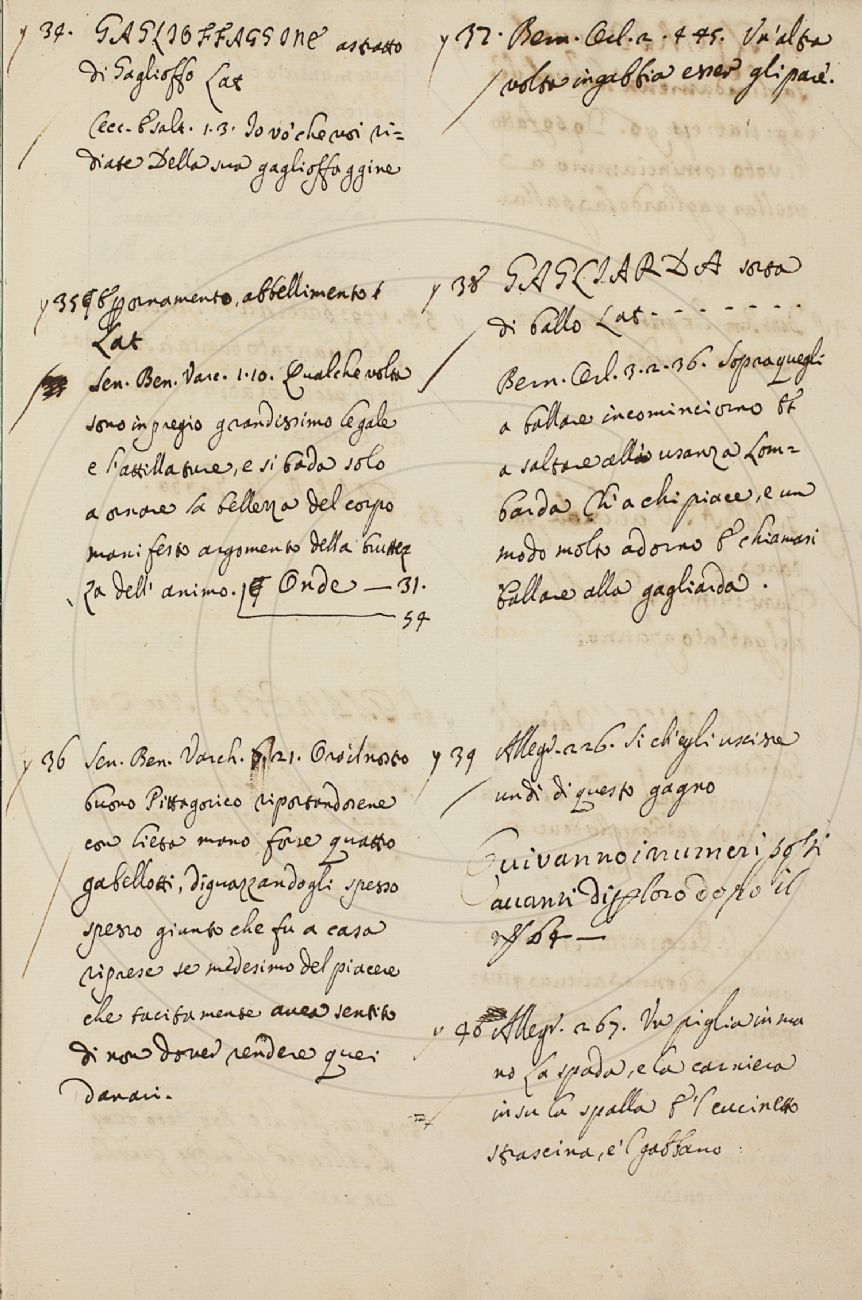 y 34. GAGLIOFFAGGINE astratto
di Gaglioffo Lat
Cecc. Esalt. 1.3. Io vo' che voi ri=
diate Della sua gaglioffaggine
y 35 & per ornamento, abbellimento
Lat
Sen. Ben. Varc. 1.10. Qualche volta
sono in pregio grandissimo le gale
e l'attillature, e si bada solo
a ornare la bellezza del corpo
manifesto argomento della brutez
za dell' animo. Onde — 31.
54
y 36 Sen. Ben. Varch. 21. Ora il nostro
buono Pittagorico riportandosene
con lieta mano forse quattro
gabellotti, diguazzandogli spesso
spesso giunto che fu a casa
riprese se medesimo del piacere
che tacitamente avea sentito
di non dover rendere quei
danari.
y 37. Bern. Orl. 2. 4 45. Un'altra
volta in gabbia esser gli pare.
y 38 GAGLIARDA sorta
di ballo Lat - - - - - - - -
Bern. Orl. 3.2.36. Sopra quegli
a ballare incominciorno &
a saltare alla usanza Lom=
barda Ch'a chi piace, e un
modo molto adorno E chiamasi
ballare alla gagliarda.
y 39 Allegr. 226. Si ch'egli uscisse
un dì di questo gagno
Qui vanno i numeri posti
avanti di loro dopo il
64 —
y 40 Allegr. 267. Un piglia in ma
no la spada, e la carniera
in su la spalla E'l cucinetto
strascina, e'l gabbano